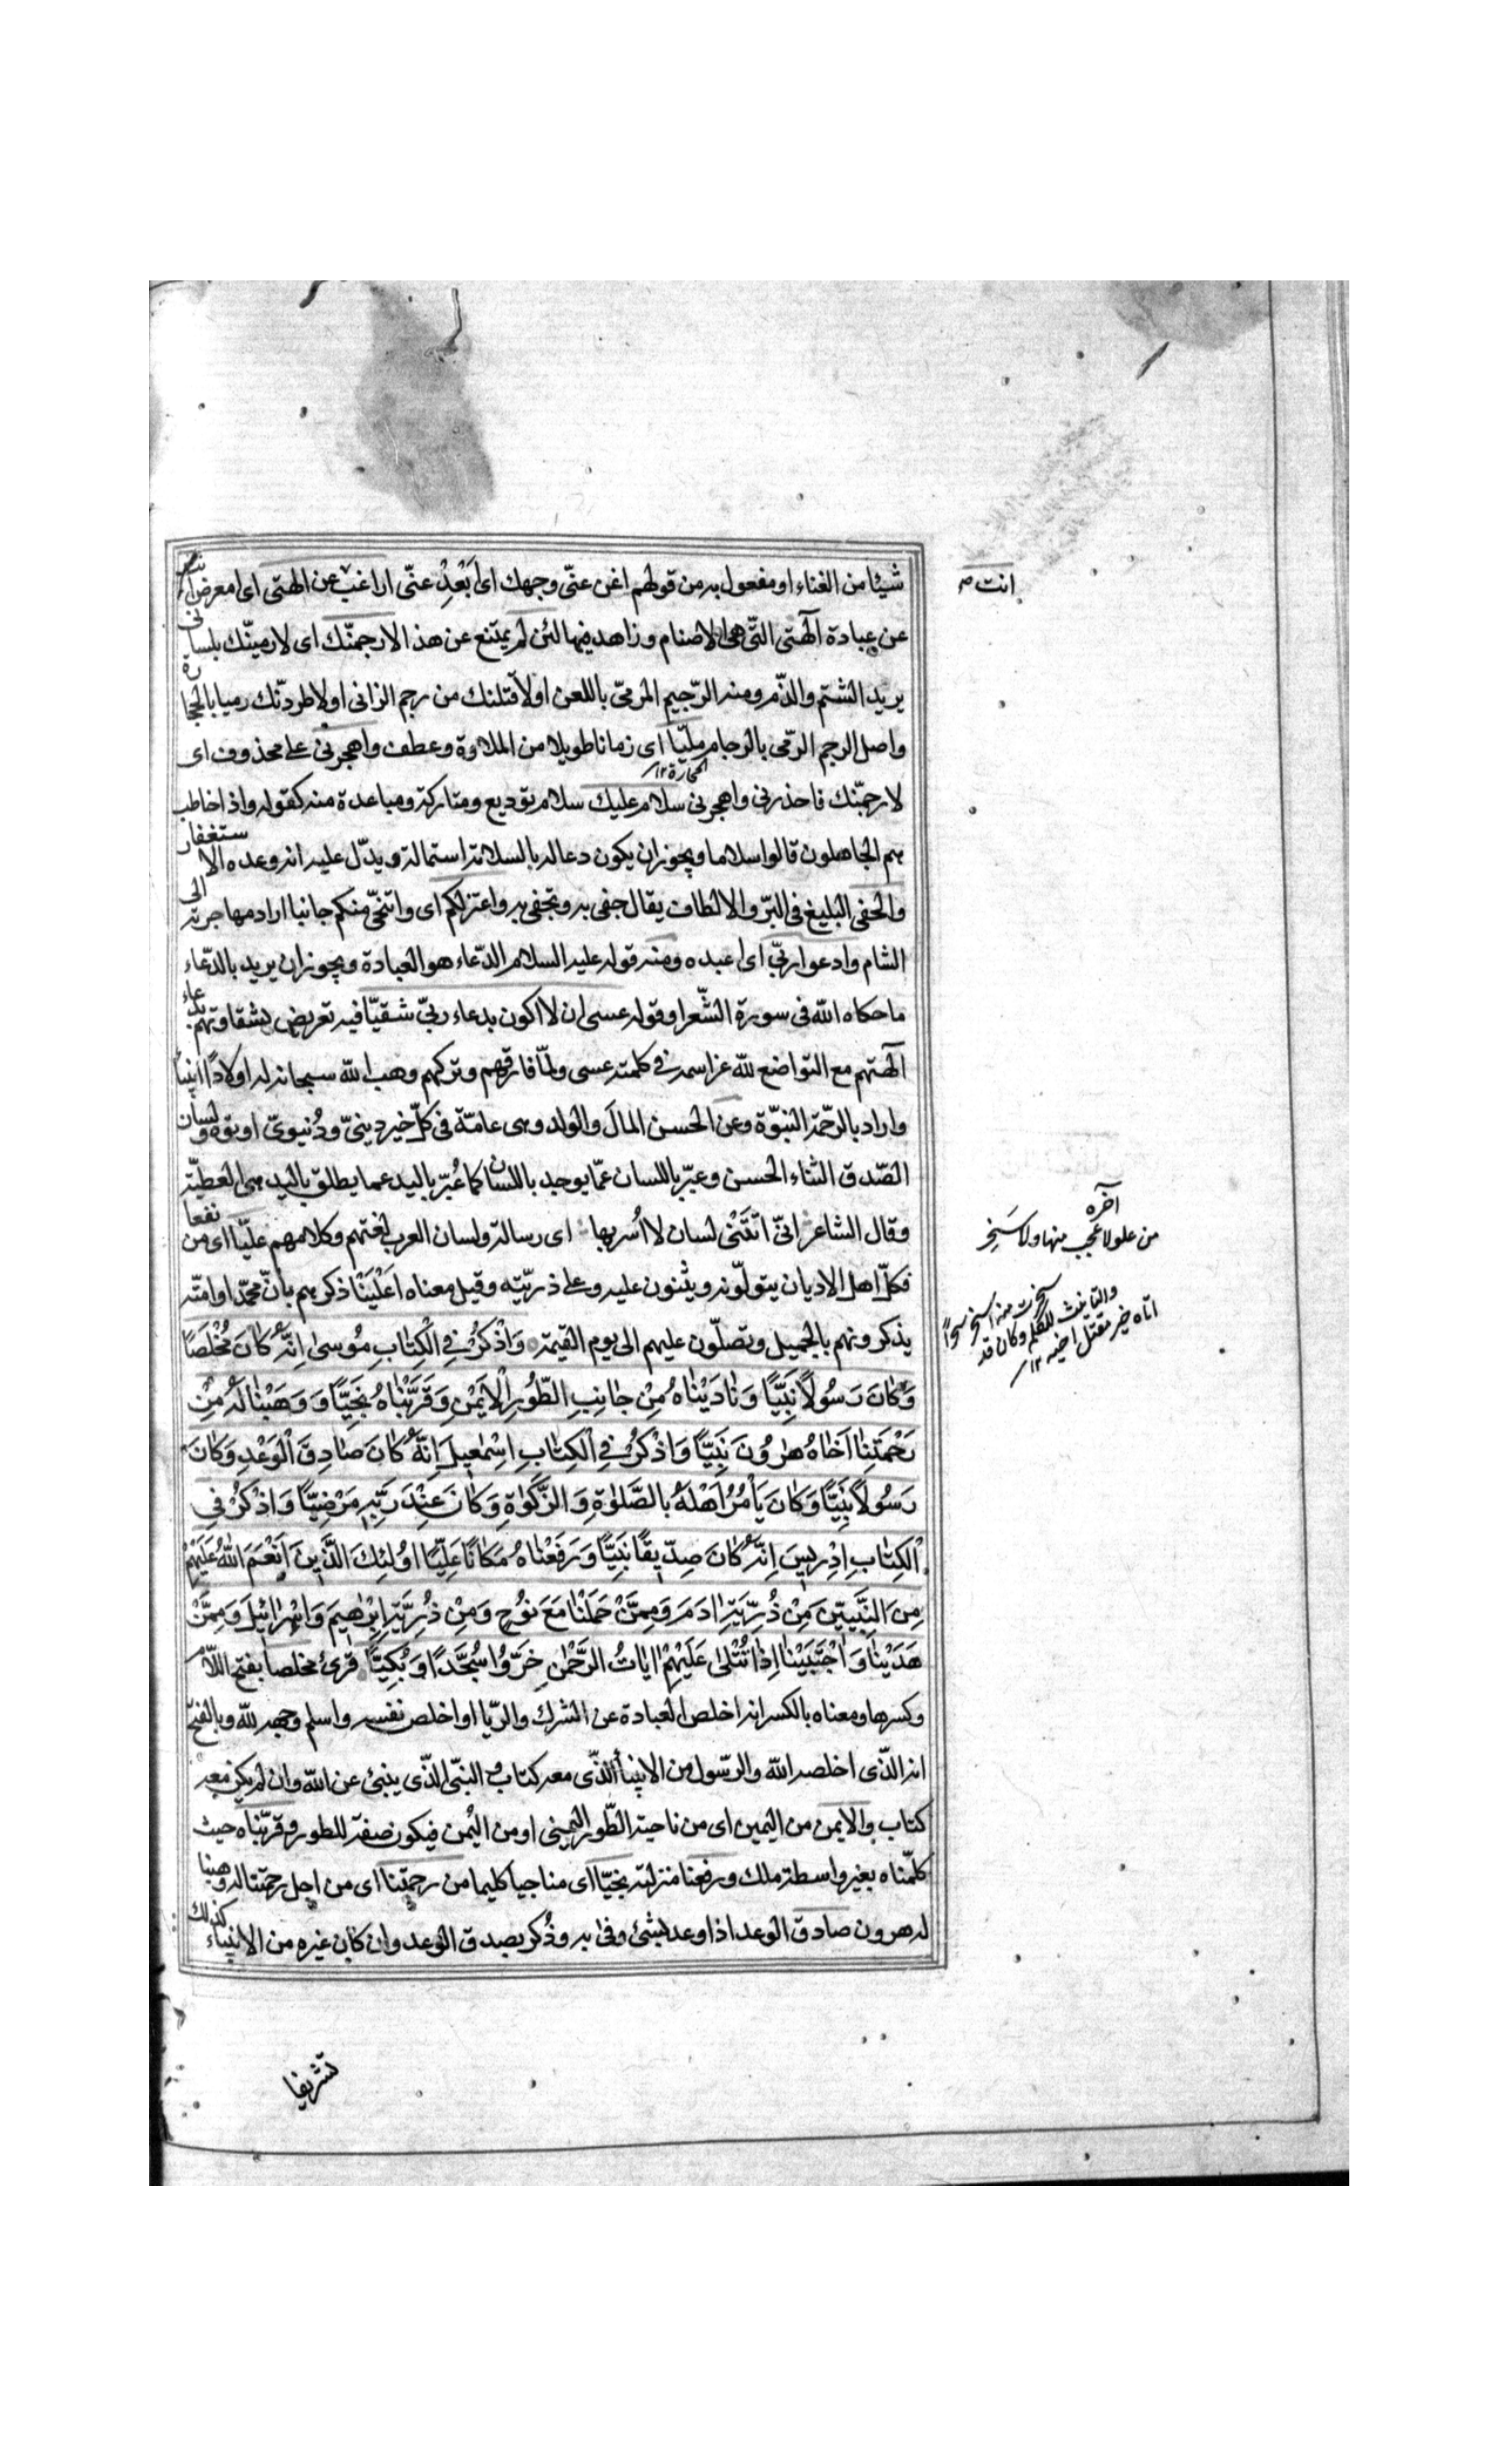 شيئا من الغناء او مفعول به من قولهم اغن عنّى وجهك اى اَبْعِدْ عنّى اراغب عن الهتى اى امعرض انت
انت
عن عبادة آلهتى التّى هى الاصنام وزاهد فيها لئن لم يمتنع عن هذا لارجمنّك اى لارمينّك بلسانى
يريد الشتم والذّم ومنه الرّجيم المرمىّ باللعن او لاقتلنك من رجم الزانى او لاطردنّك رميا بالحجارة
واصل الرجم الرّمى بالرجام مليّا اى زمانا طويلا من الملاوة وعطف واهجرنى على محذوف اى
الحجارة ١٢
لارجمنّك فاحذرنى واهجرنى سلام عليك سلام توديع ومتاركة ومباعدة منه كقوله واذا خاطب
هم الجاهلون قالوا سلاما ويجوز ان يكون دعا له بالسلامة استمالة ويدّل عليه انه وعده الاستغفار
والحفى البليغ فى البرّ والالطاف يقال حفى به وتحفى به واعتزلكم اى واتنحّى منكم جانبا اراد مهاجرته الى
الشام وادعوا ربّى اى اعبده ومنه قوله عليه السلام الدّعاء هو العبادة ويجوز ان يريد بالدّعاء
ما حكاه الله فى سورة الشّعرا وقوله عسى ان لا اكون بدعاء ربىّ شقيّا فيه تعريض بشقاوتهم بدعاء
آلهتهم مع التواضع للّه عز اسمه فى كلمة عسى ولمّا فارقهم وتركهم وهب الله سبحانه له اولادًا انبياً
واراد بالرحّمة النبوّة وعن الحسن المالَ والولد وهى عامّة فى كلّ خير دينىّ ودُنيوىّ اوتوه ولسان
الصّدق الثناء الحسن وعبّر باللسان عمّا يوجد باللسان كما عُبّر باليد عما يطلق باليد هى العطيّة
وقال الشاعر انىّ اتَتَنْى لسان لا اُسر بها اى رسالة ولسان العرب لغتهم وكلامهم عليّا اى من نفعا
آخره
من علو لا عجب منها ولا سَخِر
فكلّ اهل الاديان يتولّونه ويثنون عليه وعلى ذريّته وقيل معناه اعلينا ذكرهم بانّ محمّدا وامّته
يذكرونهم بالجميل وتصلّون عليهم الى يوم القيمة وَاذْكُرْ فِى الْكِتَابِ مُوسىٰ اِنَّهُ كَانَ مُخْلَصًا
وَكَانَ رَسُولًا نَبِيًّا وَنَادَيْنَاهُ مِنْ جَانِبِ الطُّورِ الْاَيْمَنِ وَقَرَّبْنَاهُ نَجِيًّا وَوَهَبْنَا لَهُ مِنْ
رَحْمَتِنَا اَخَاهُ هٰرُونَ نَبِيًّا وَاذْكُرْ فِى الْكِتَابِ اِسْمٰعِيلَ اِنَّهُ كَانَ صَادِقَ الْوَعْدِ وَكَانَ
رَسُولًا نَبِيًّا وَكَانَ يَأْمُرُ اَهْلَهُ بِالصَّلٰوةِ وَالزَّكٰوةِ وَكَانَ عِنْدَ رَبِّهِ مَرْضِيًّا وَاذْكُرْ فِى
الْكِتَابِ اِدْرِيسَ اِنَّهُ كَانَ صِدّيقًا نَبِيًّا وَرَفَعْنَاهُ مَكَانًا عَلِيًّا اُولٰئِكَ الَّذِينَ اَنْعَمَ اللّٰهُ عَلَيْهِمْ
مِنَ النَّبِيّينَ مِنْ ذُرِّيَّةِ اٰدَمَ وَمِمَّنْ حَمَلْنَا مَعَ نُوحٍ وَمِنْ ذُرِّيَّةِ اِبْرٰهِيمَ وَاِسْرٰائِيلَ وَمِمَّنْ
هَدَيْنَا وَاجْتَبَيْنَا اِذَا تُتْلىٰ عَلَيْهِمْ اٰيَاتُ الرَّحْمٰنِ خَرُّوا سُجَّدًا وَبُكِيًّا قرئ مخلصا بفتح اللاّم
وكسرها ومعناه بالكسر انه اخلص العبادة عن الشرك والريّا او اخلص نفسه واسلم وجهه للّه وبالفتح
انه الذّى اخلصه الله والرسّول من الانبيأ الذّى معه كتاب والنبّى الذّى ينبئ عن الله وان لم يكن معه
كتاب والايمن من اليمين اى من ناحية الطّور اليمنى او من اليُمن فيكون صفة للطور وقربّناه حيث
كلّمناه بغير واسطة ملك ورفعنا منزلته نجيّا اى مناجيا كليما من رحمتنا اى من اجل رحمتنا له وهبنا
له هرون صادق الوعد اذا وعد بشئ وفى به وذُكر بصدق الوعد وان كان غيره من الانبياء كذلك
تشريفا